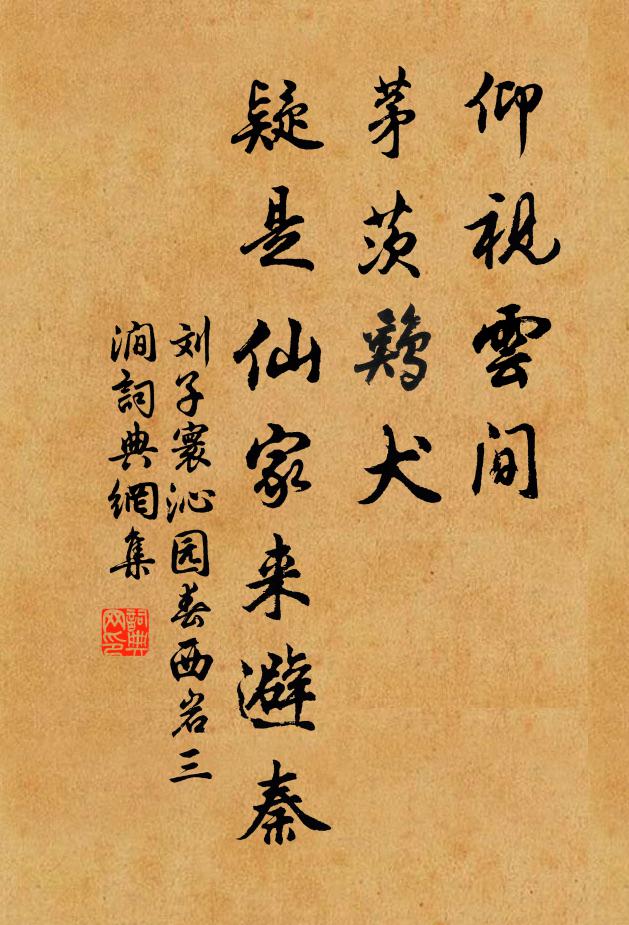 仰視雲间
茅茨鷄犬
疑是仙家来避秦
刘子寰沁园春西岩三
涧詞典網集
詞典网印